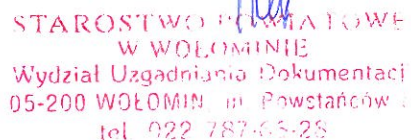 STAROSTWO POWIATOWE
W WOŁOMINIE
Wydział Uzgadniania Dokumentacj
05-200 WOŁOMIN ul Powstańców
tel. 022 787-03-28